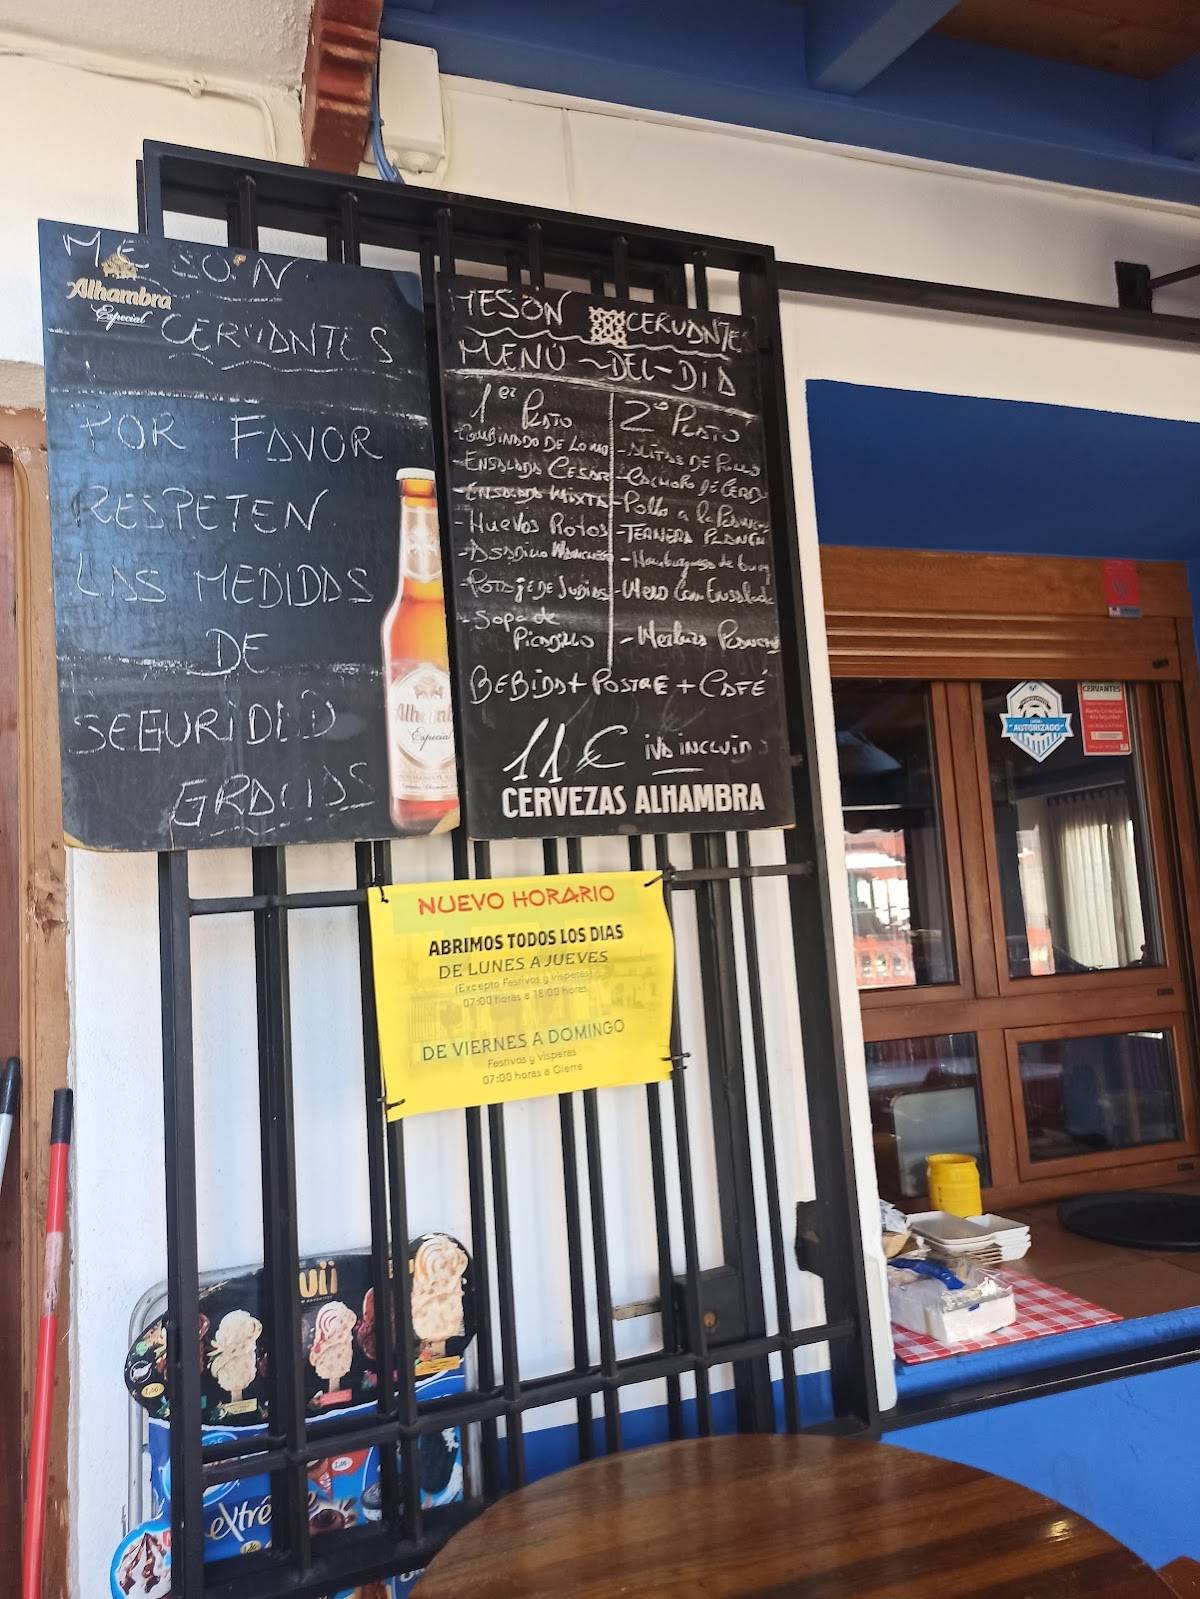 MESON
Alhambra
Especial
CERVANTES
POR FAVOR
RESPETEN
LAS MEDIDAS
DE
SEGURIDAD
GRACIAS
Alhambra
Especial
MESON CERVANTES
MENÚ-DEL-DIA
1er PLATO
-COMBINADO DE LOMO
-ENSALADA CESAR
-ENSALADA MIXTA
-HUEVOS ROTOS
-ASADILLO MANCHEGO
-POTAJE DE JUDIAS
-SOPA de
PICADILLO
2º PLATO
-ALITAS DE POLLO
-CACHOPO DE CERDO
-Pollo a la PLANCHA
-TERNERA PLANCHA
-Hamburguesa de buey
-Mero Con Ensalada
-Merluza PLANCHA
BEBIDA + POSTRE + CAFÉ
11€ IVA INCLUIDO
CERVEZAS ALHAMBRA
NUEVO HORARIO
ABRIMOS TODOS LOS DIAS
DE LUNES A JUEVES
(Excepto Festivos y vísperas)
07:00 horas a 18:00 horas
DE VIERNES A DOMINGO
Festivos y vísperas
07:00 horas a Cierre
AUTORIZADO
CERVANTES
eXtrême